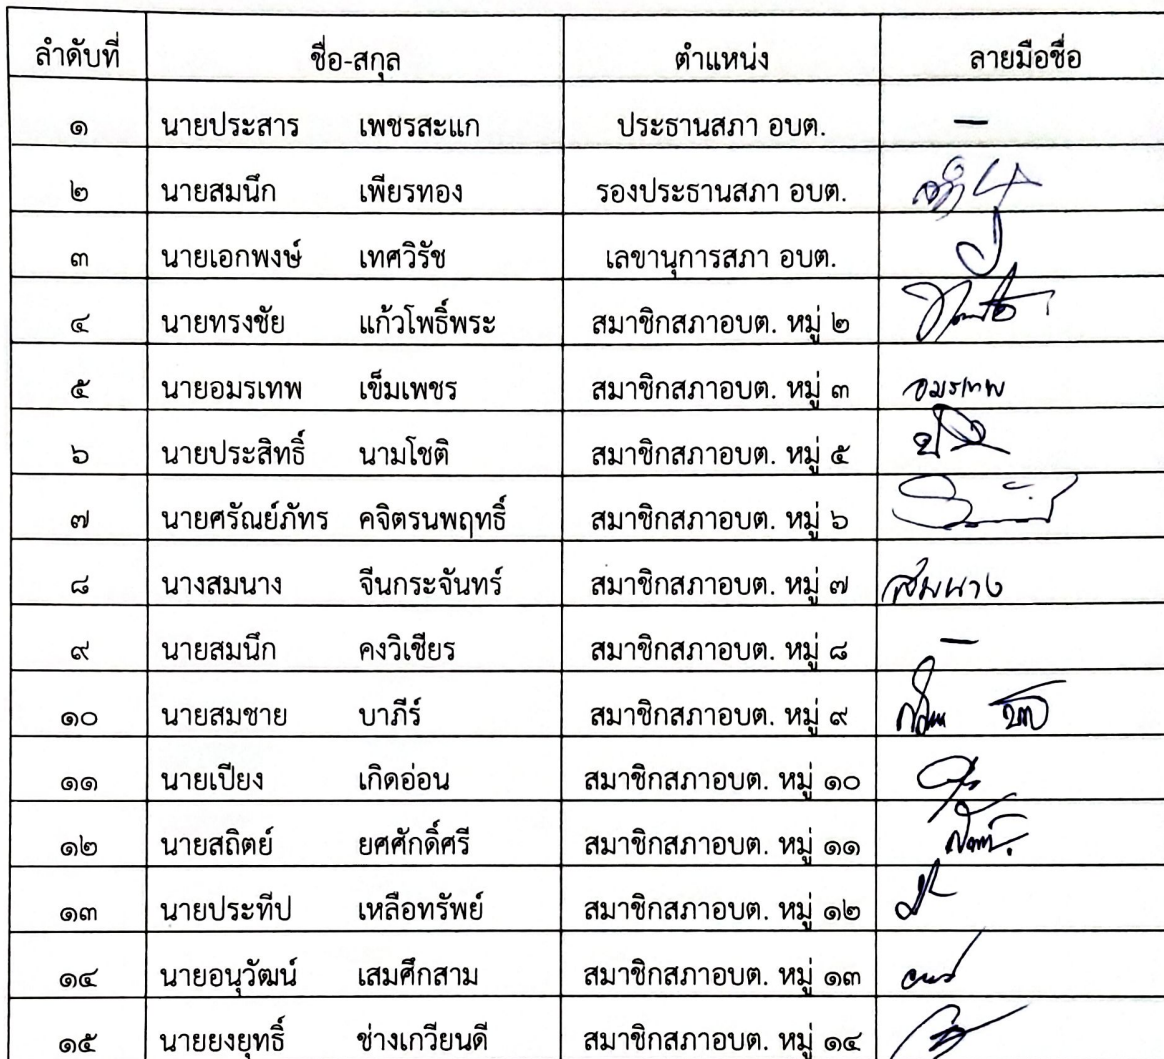 ลำดับที่ ชื่อ-สกุล ตำแหน่ง ลายมือชื่อ
๑ นายประสาร เพชรสะแก ประธานสภา อบต. –
๒ นายสมนึก เพียรทอง รองประธานสภา อบต.
๓ นายเอกพงษ์ เทศวิรัช เลขานุการสภา อบต.
๔ นายทรงชัย แก้วโพธิ์พระ สมาชิกสภาอบต. หมู่ ๒
๕ นายอมรเทพ เข็มเพชร สมาชิกสภาอบต. หมู่ ๓ อมรเทพ
๖ นายประสิทธิ์ นามโชติ สมาชิกสภาอบต. หมู่ ๕
๗ นายศรัณย์ภัทร คจิตรนพฤทธิ์ สมาชิกสภาอบต. หมู่ ๖
๘ นางสมนาง จีนกระจันทร์ สมาชิกสภาอบต. หมู่ ๗ สมนาง
๙ นายสมนึก คงวิเชียร สมาชิกสภาอบต. หมู่ ๘ –
๑๐ นายสมชาย บาภีร์ สมาชิกสภาอบต. หมู่ ๙
๑๑ นายเปียง เกิดอ่อน สมาชิกสภาอบต. หมู่ ๑๐
๑๒ นายสถิตย์ ยศศักดิ์ศรี สมาชิกสภาอบต. หมู่ ๑๑
๑๓ นายประทีป เหลือทรัพย์ สมาชิกสภาอบต. หมู่ ๑๒
๑๔ นายอนุวัฒน์ เสมศึกสาม สมาชิกสภาอบต. หมู่ ๑๓
๑๕ นายยงยุทธิ์ ช่างเกวียนดี สมาชิกสภาอบต. หมู่ ๑๔